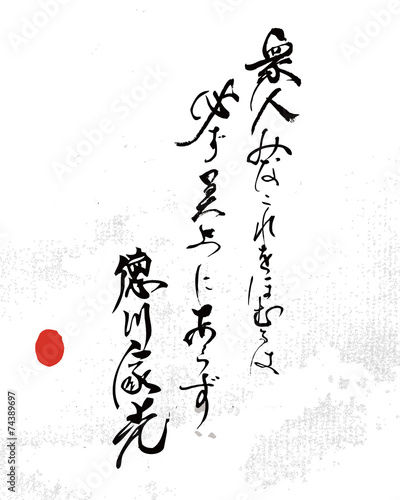 衆人みなこれをほむるは
必ず上にあらず
徳川家光
Adobe Stock | #74389697